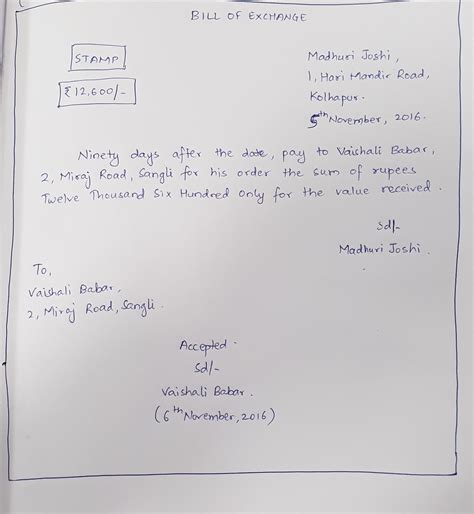 BILL OF EXCHANGE
STAMP
₹ 12,600/-
Madhuri Joshi,
1, Hari Mandir Road,
Kolhapur.
5th November, 2016.
Ninety days after the date, pay to Vaishali Babar,
2, Miraj Road, Sangli for his order the sum of rupees
Twelve Thousand Six Hundred Only for the value received.
Sd/-
Madhuri Joshi.
To,
Vaishali Babar,
2, Miraj Road, Sangli.
Accepted.
Sd/-
Vaishali Babar.
(6th November, 2016)